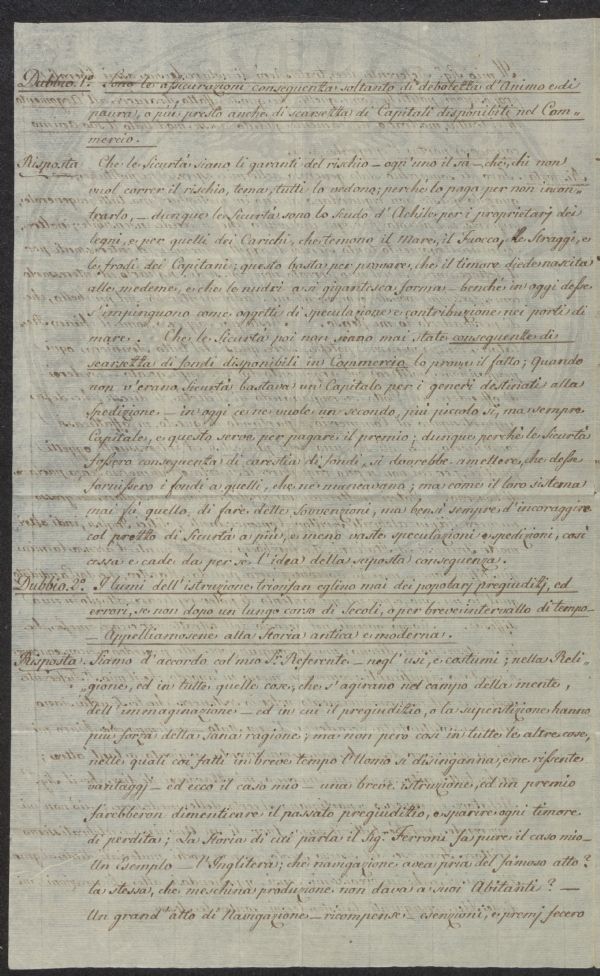 Dubbio. 1º. Sono le assicurazioni conseguenza soltanto di debolezza d'Animo e di
paura, o più presto anche di scarsezza di Capitali disponibili nel Com=
mercio.
Risposta Che le Sicurtà siano li garanti del rischio – ogn'uno il sà – che, chi non
vuol correr il rischio, tema, tutti lo vedono; perchè lo paga per non incon=
trarlo, – dunque le Sicurtà sono lo scudo d'Achile, per i proprietarj dei
legni, e per quelli dei Carichi, che temono il Mare, il Fuoco, le Straggi, e
le frodi dei Capitani; questo basta per provare, che il timore diede nascita
alle medeme, e che le nudrì a sì gigantesca forma – benchè in oggi desse
s'impinguono come oggetti di speculazione e contribuzione nei porti di
mare. Che le Sicurtà poi non siano mai state conseguenze di
scarsezza di fondi disponibili in Commercio lo prova il fatto; Quando
non v'erano Sicurtà bastava un Capitale per i generi destinati alla
Spedizione – in oggi ce ne vuole un secondo, più piccolo sì, ma sempre
Capitale, e questo serve per pagare il premio; dunque perchè le Sicurtà
fossero conseguenza di carestia di fondi, si dovrebbe ametter, che desse
fornissero i fondi a quelli, che ne mancavano; ma come il loro sistema
mai fù quello, di fare delle Sovvenzioni, ma bensì sempre d'incoraggire
col prezzo di Sicurtà a più, e meno vaste speculazioni e spedizioni, così
cessa e cade da per sè l'idea della suposta conseguenza.
Dubbio. 2º. I lumi dell'istruzione trionfan eglino mai dei popolarj pregiudizj, ed
errori, se non dopo un lungo corso di Secoli, o per breve intervallo di tempo–
– Appelliamosene alla Storia antica e moderna.
Risposta. Siamo d'accordo col mio Sr. Referente – negl'usi, e costumi; nella Reli=
=gione, ed in tutte quelle cose, che s'agirano nel campo della mente,
dell'immaginazione – ed in cui il pregiudizio, o la superstizione hanno
più forza della sana ragione; ma non però così in tutte le altre cose,
nelle quali coi fatti in breve tempo l'Uomo si disinganna, e ne risente
vantaggj – ed ecco il caso mio – una breve istruzione, ed un premio
farebberon dimenticare il passato pregiudizio, e sparire ogni timore
di perdita; La Storia di cui parla il Sigr. Ferroni fà pure il caso mio–
Un Esempio – l'Inglitera; che navigazione avea pria del famoso atto?
la stessa, che meschina produzione non dava a suoi Abitanti? –
Un grand'atto di Navigazione – ricompense – esenzioni, e premj fecero